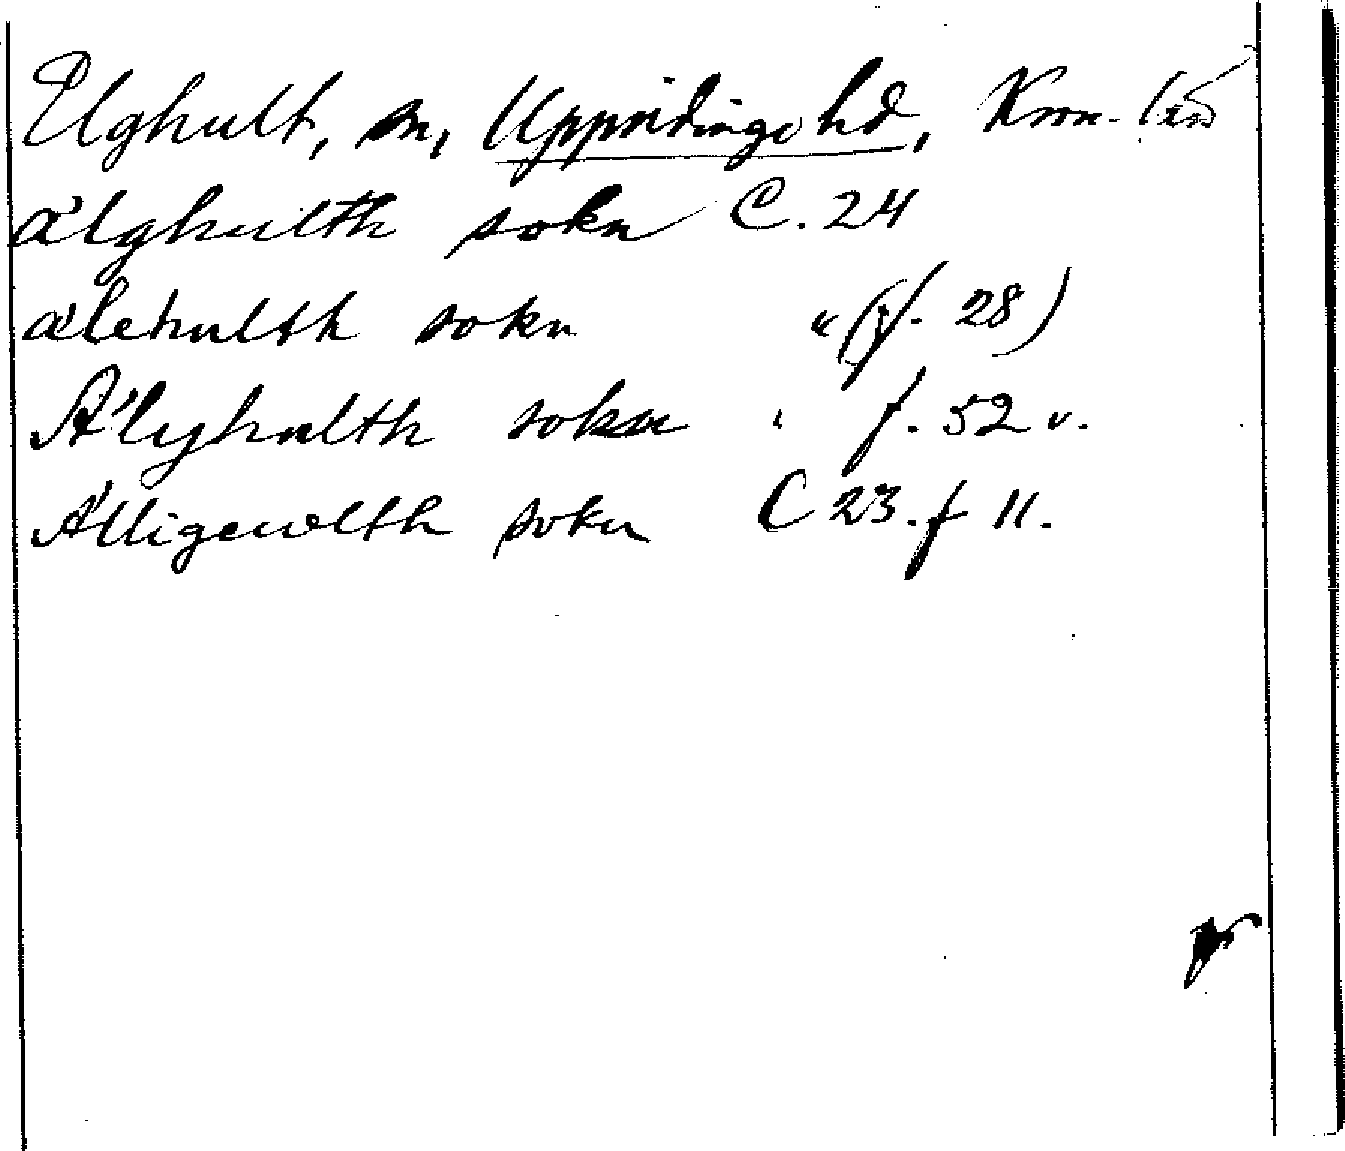 Elghult, sn, Uppvidinge hd, Kron. län
älghulth sokn C. 24
älehulth sokn " (f. 28)
Älyhulth sokn " f. 52 v.
Älligewlth sokn C 23. f 11.